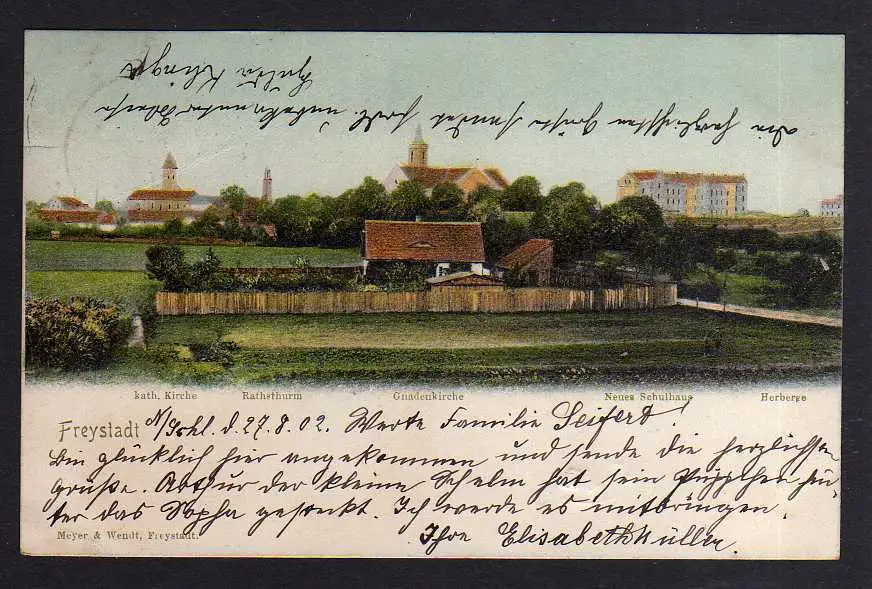 die herzlichsten Grüße sendet
Hulda Klinger
kath. Kirche Rathsthurm Gnadenkirche Neues Schulhaus Herberge
Freystadt N/Schl. d. 27.8.02. Werte Familie Seifert!
Bin glücklich hier angekommen und sende die herzlichsten
Grüße. Arthur der kleine Schelm hat sein Püppchen hin-
ter das Sopha gesteckt. Ich werde es mitbringen.
Ihre Elisabeth Küller.
Meyer & Wendt, Freystadt.